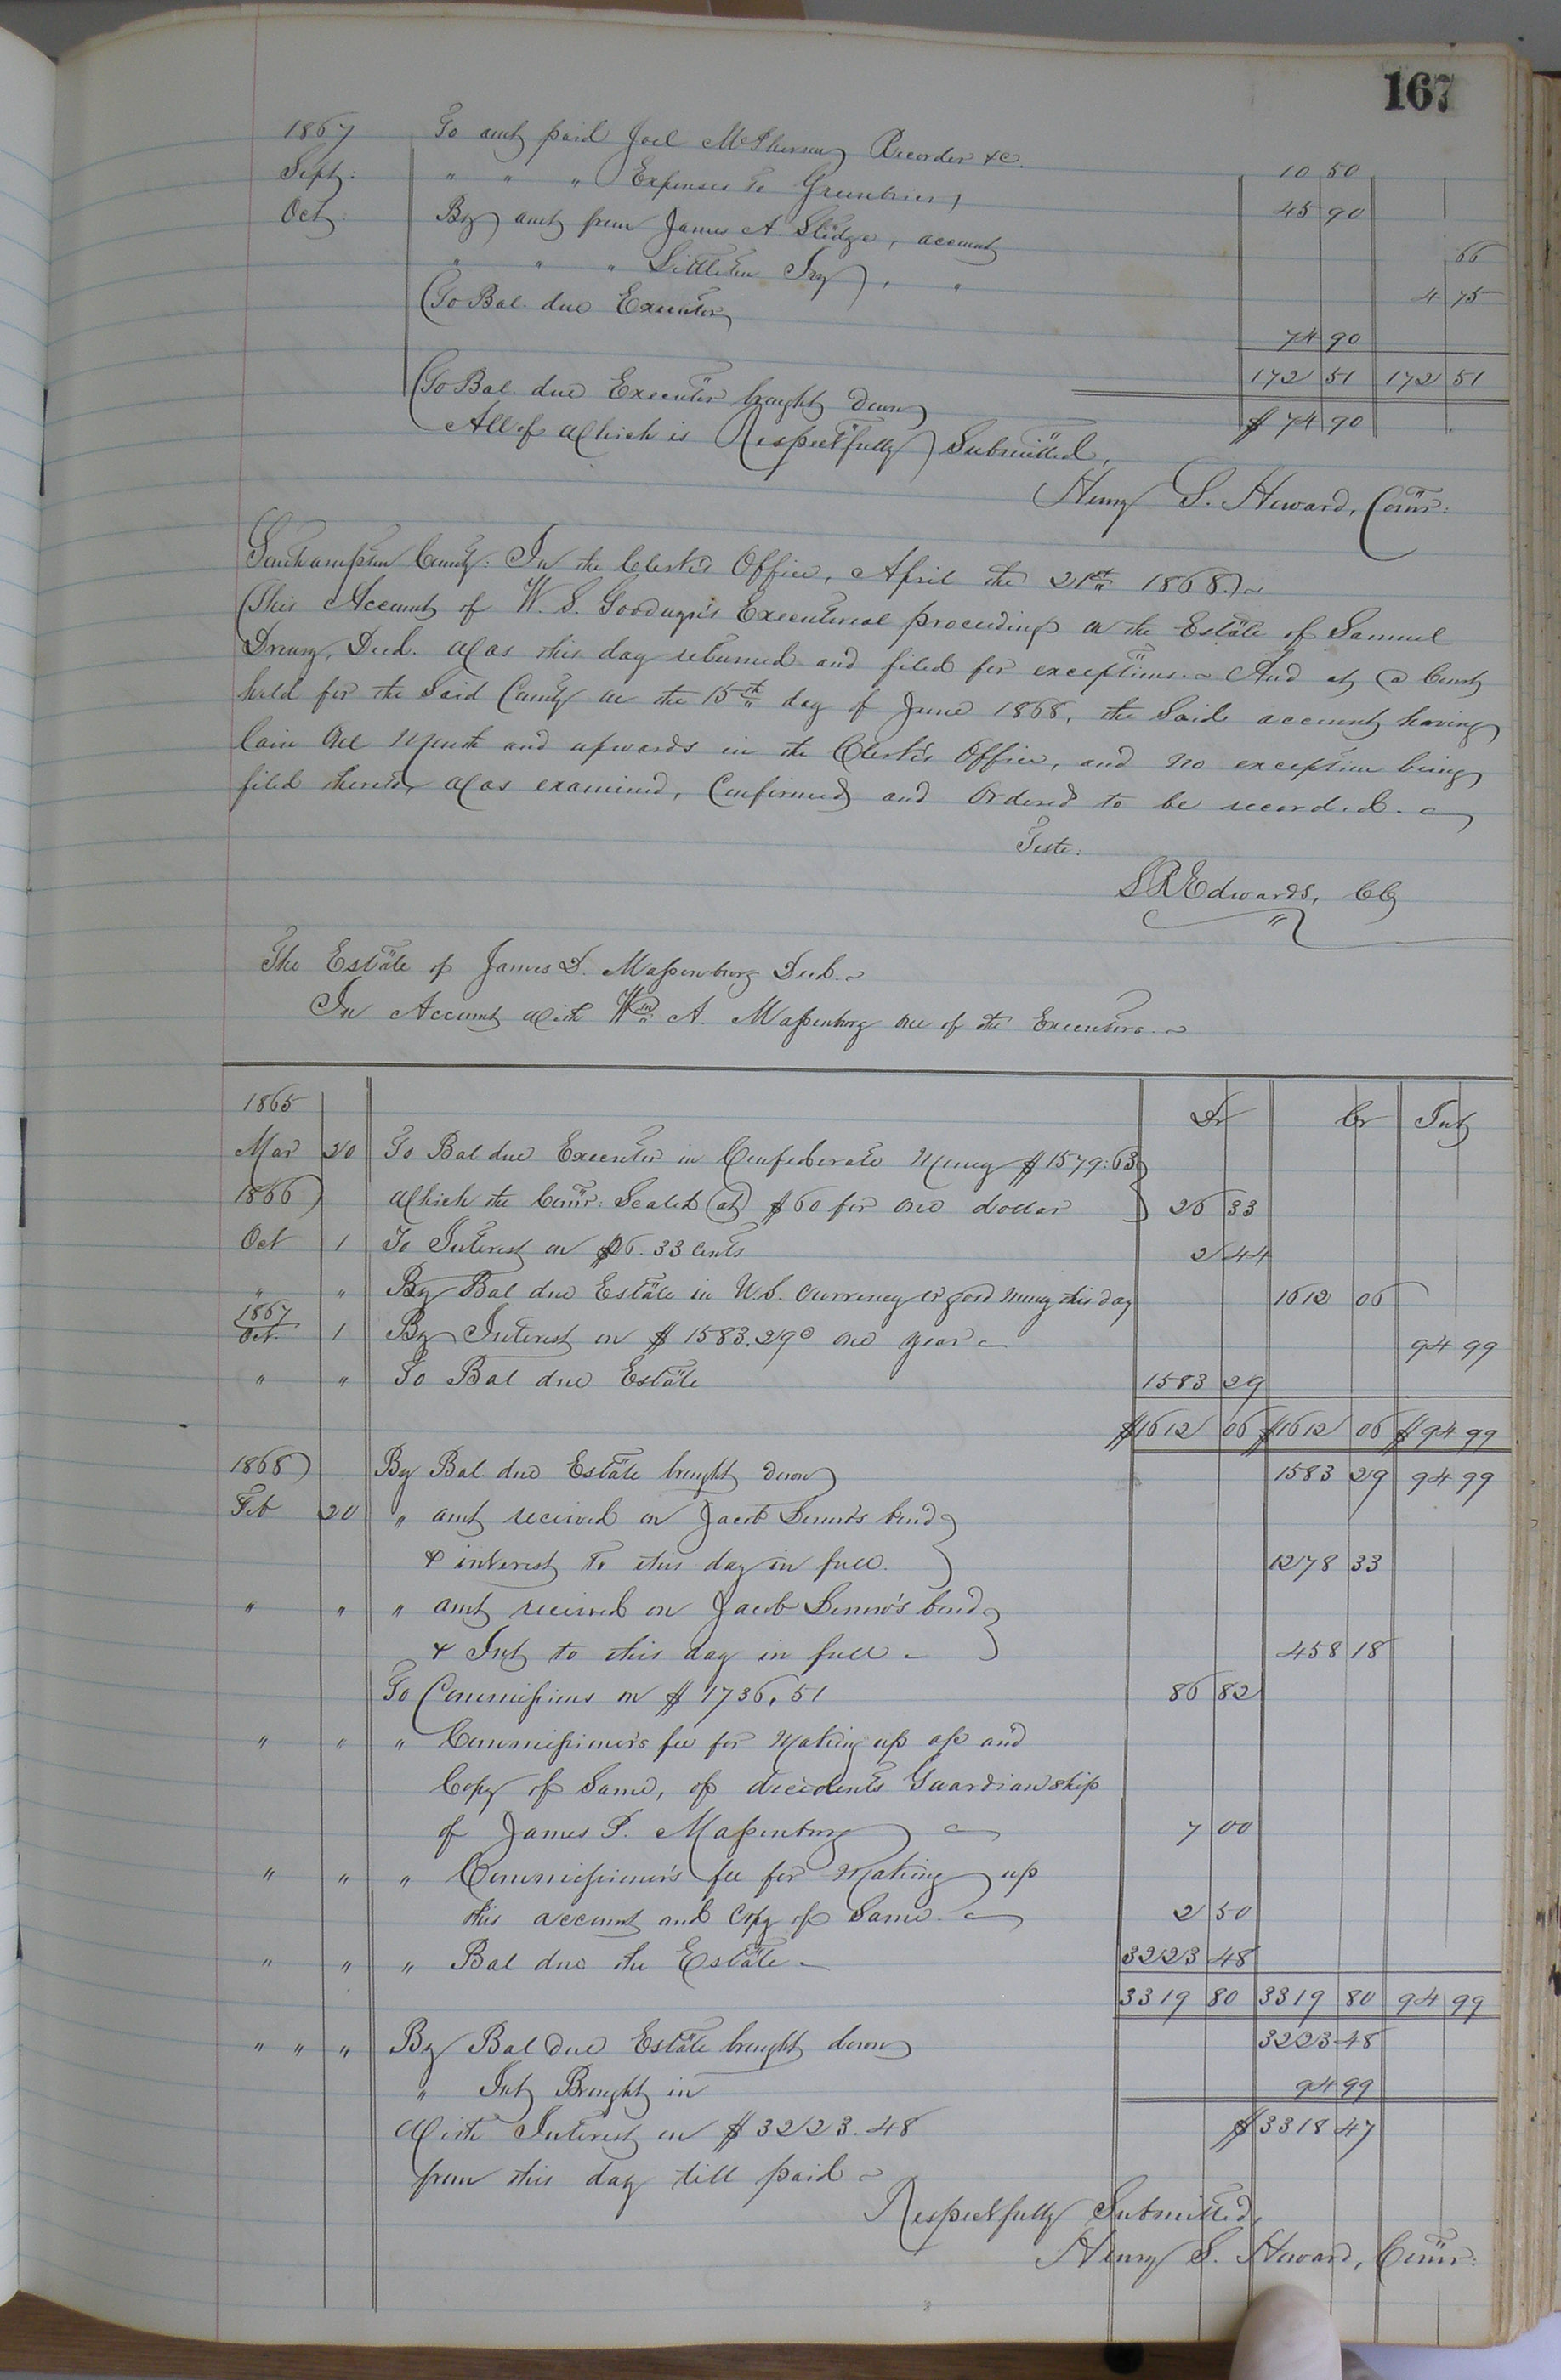 167
1867 To amt paid Joel McPherson, Recorder &c. 10 50
Sept: " " " Expenses to Greenbrier, 45 90
Oct: By amt from James A. Sledge, account 66
" " " Littleton Ivy, " 4 75
To Bal. due Executor, 74 90
172 51 172 51
To Bal. due Executor brought down $ 74 90
All of which is Respectfully Submitted,
Henry S. Howard, Comr:
Southampton County: In the Clerk's Office, April the 21st 1868.
This Account of W. S. Goodwyn's Executorial proceedings on the Estate of Samuel
Drewry, Decd. was this day returned and filed for exceptions. And at a Court
held for the Said County on the 15th day of June 1868, the Said account having
lain one Month and upwards in the Clerk's Office, and no exception being
filed thereto, was examined, Confirmed and Ordered to be recorded.
Teste:
L R Edwards, CC
The Estate of James D. Massenburg Decd.
In Account with Wm. A. Massenburg one of the Executors.
1865 Dr Cr Int
Mar 20 To Bal due Executor in Confederate Money $1579:63
1866 which the Comr: Scaled at $60 for one dollar 26 33
Oct 1 To Interest on $26.33 cents 2 44
" " By Bal due Estate in U.S. currency or good money this day 1612 06
1867
Oct. 1 By Interest on $ 1583.29c one year 94 99
" " To Bal due Estate 1583 29
$1612 06 $1612 06 $94 99
1868 By Bal. due Estate brought down 1583 29 94 99
Feb 20 " amt received on Jacob Senow's bond
& interest to this day in full. 1278 33
" " " amt received on Jacob Senow's bond
& Int to this day in full 458 18
To Commissions on $ 1736.51 86 82
" " " Commissioner's fee for making up a/c and
Copy of Same, of decedents Guardianship
of James P. Massenburg 7 00
" " " Commissioner's fee for Making up
this account and copy of Same. 2 50
" " " Bal due the Estate 3223 48
3319 80 3319 80 94 99
" " " By Bal due Estate brought down 3223 48
" Int Brought in 94 99
With Interest on $3223.48 $3318 47
from this day till paid
Respectfully Submitted,
Henry S. Howard, Comr: